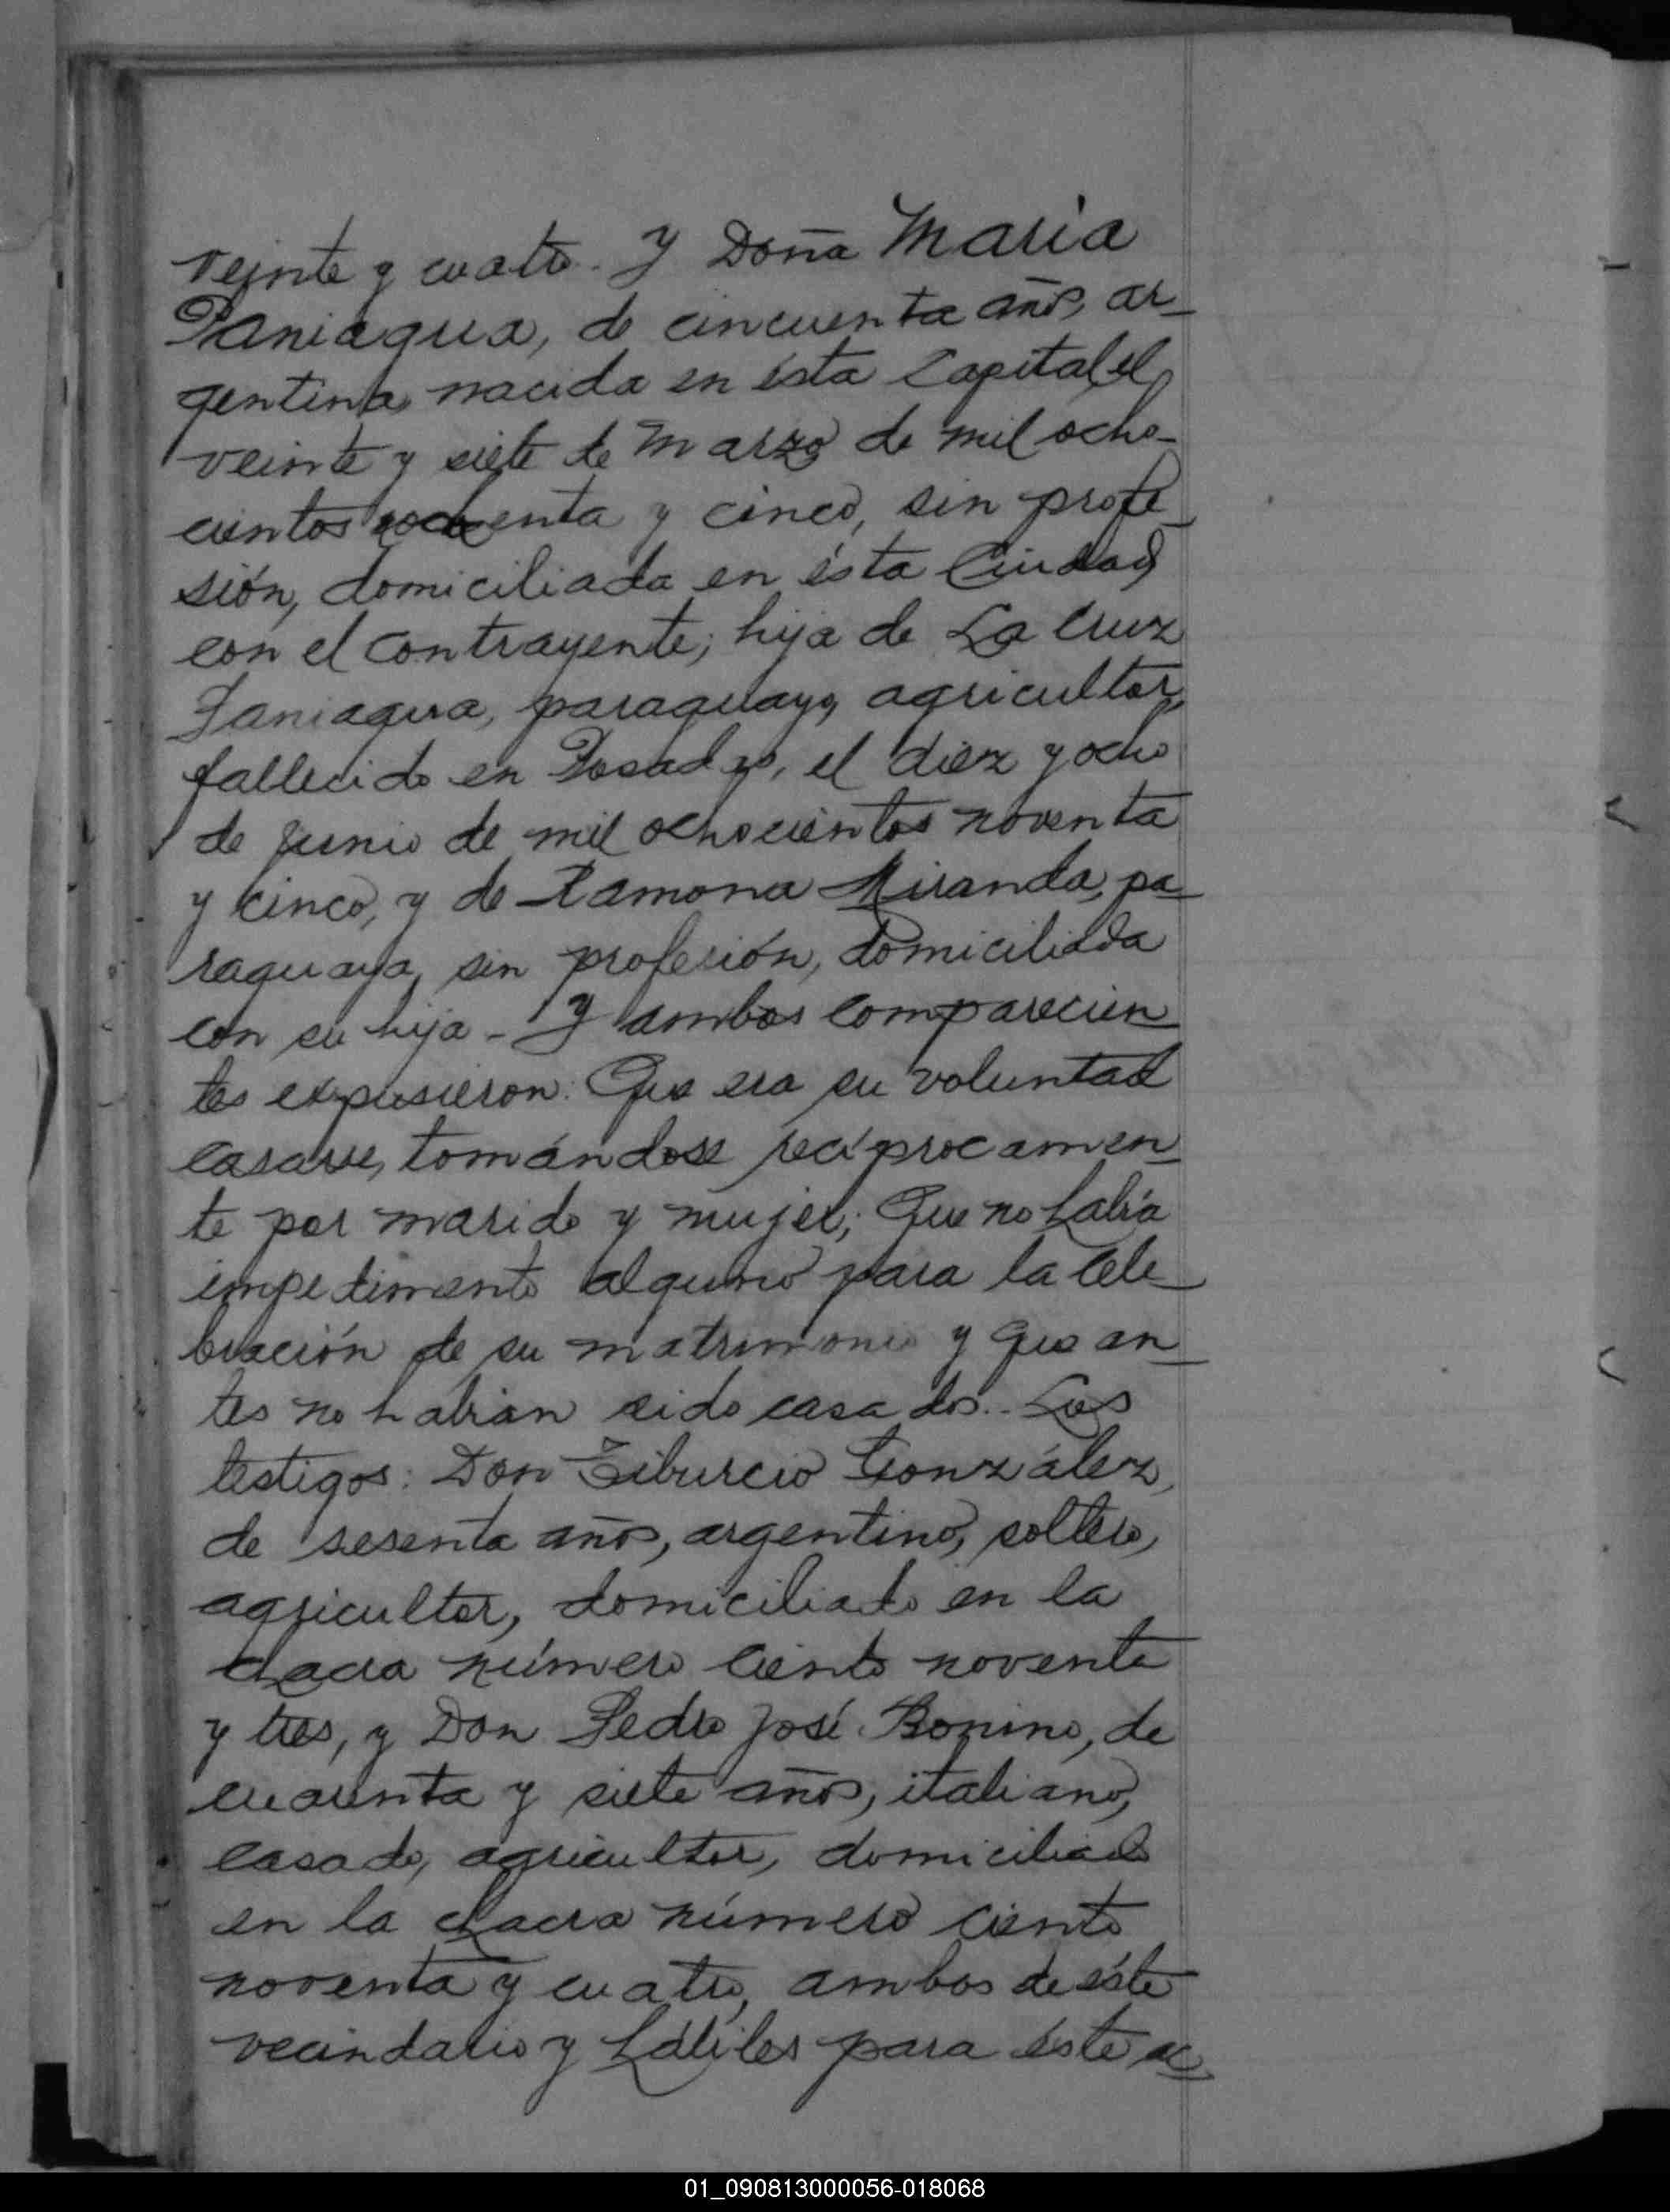 veinte y cuatro. Y Doña Maria
Paniagua, de cincuenta años, ar-
gentina, nacida en ésta Capital, el
veinte y siete de Marzo de mil ocho-
cientos ochenta y cinco, sin profe-
sión, domiciliada en ésta Ciudad
con el contrayente; hija de La Cruz
Paniagua, paraguayo, agricultor,
fallecido en Posadas, el diez y ocho
de Junio de mil ochocientos noventa
y cinco, y de Ramona Miranda, pa-
raguaya, sin profesión, domiciliada
con su hija - Y ambos comparecien-
tes expusieron: Que era su voluntad
casarse, tomándose recíprocamen-
te por marido y mujer; Que no había
impedimento alguno para la cele-
bración de su matrimonio y que an-
tes no habian sido casados.. Los
testigos: Don Tiburcio González,
de sesenta años, argentino, soltero,
agricultor, domiciliado en la
chacra número ciento noventa
y tres, y Don Pedro José Bonino, de
cuarenta y siete años, italiano,
casado, agricultor, domiciliado
en la chacra número ciento
noventa y cuatro, ambos de éste
vecindario y hábiles para éste ac-
01_090813000056-018068